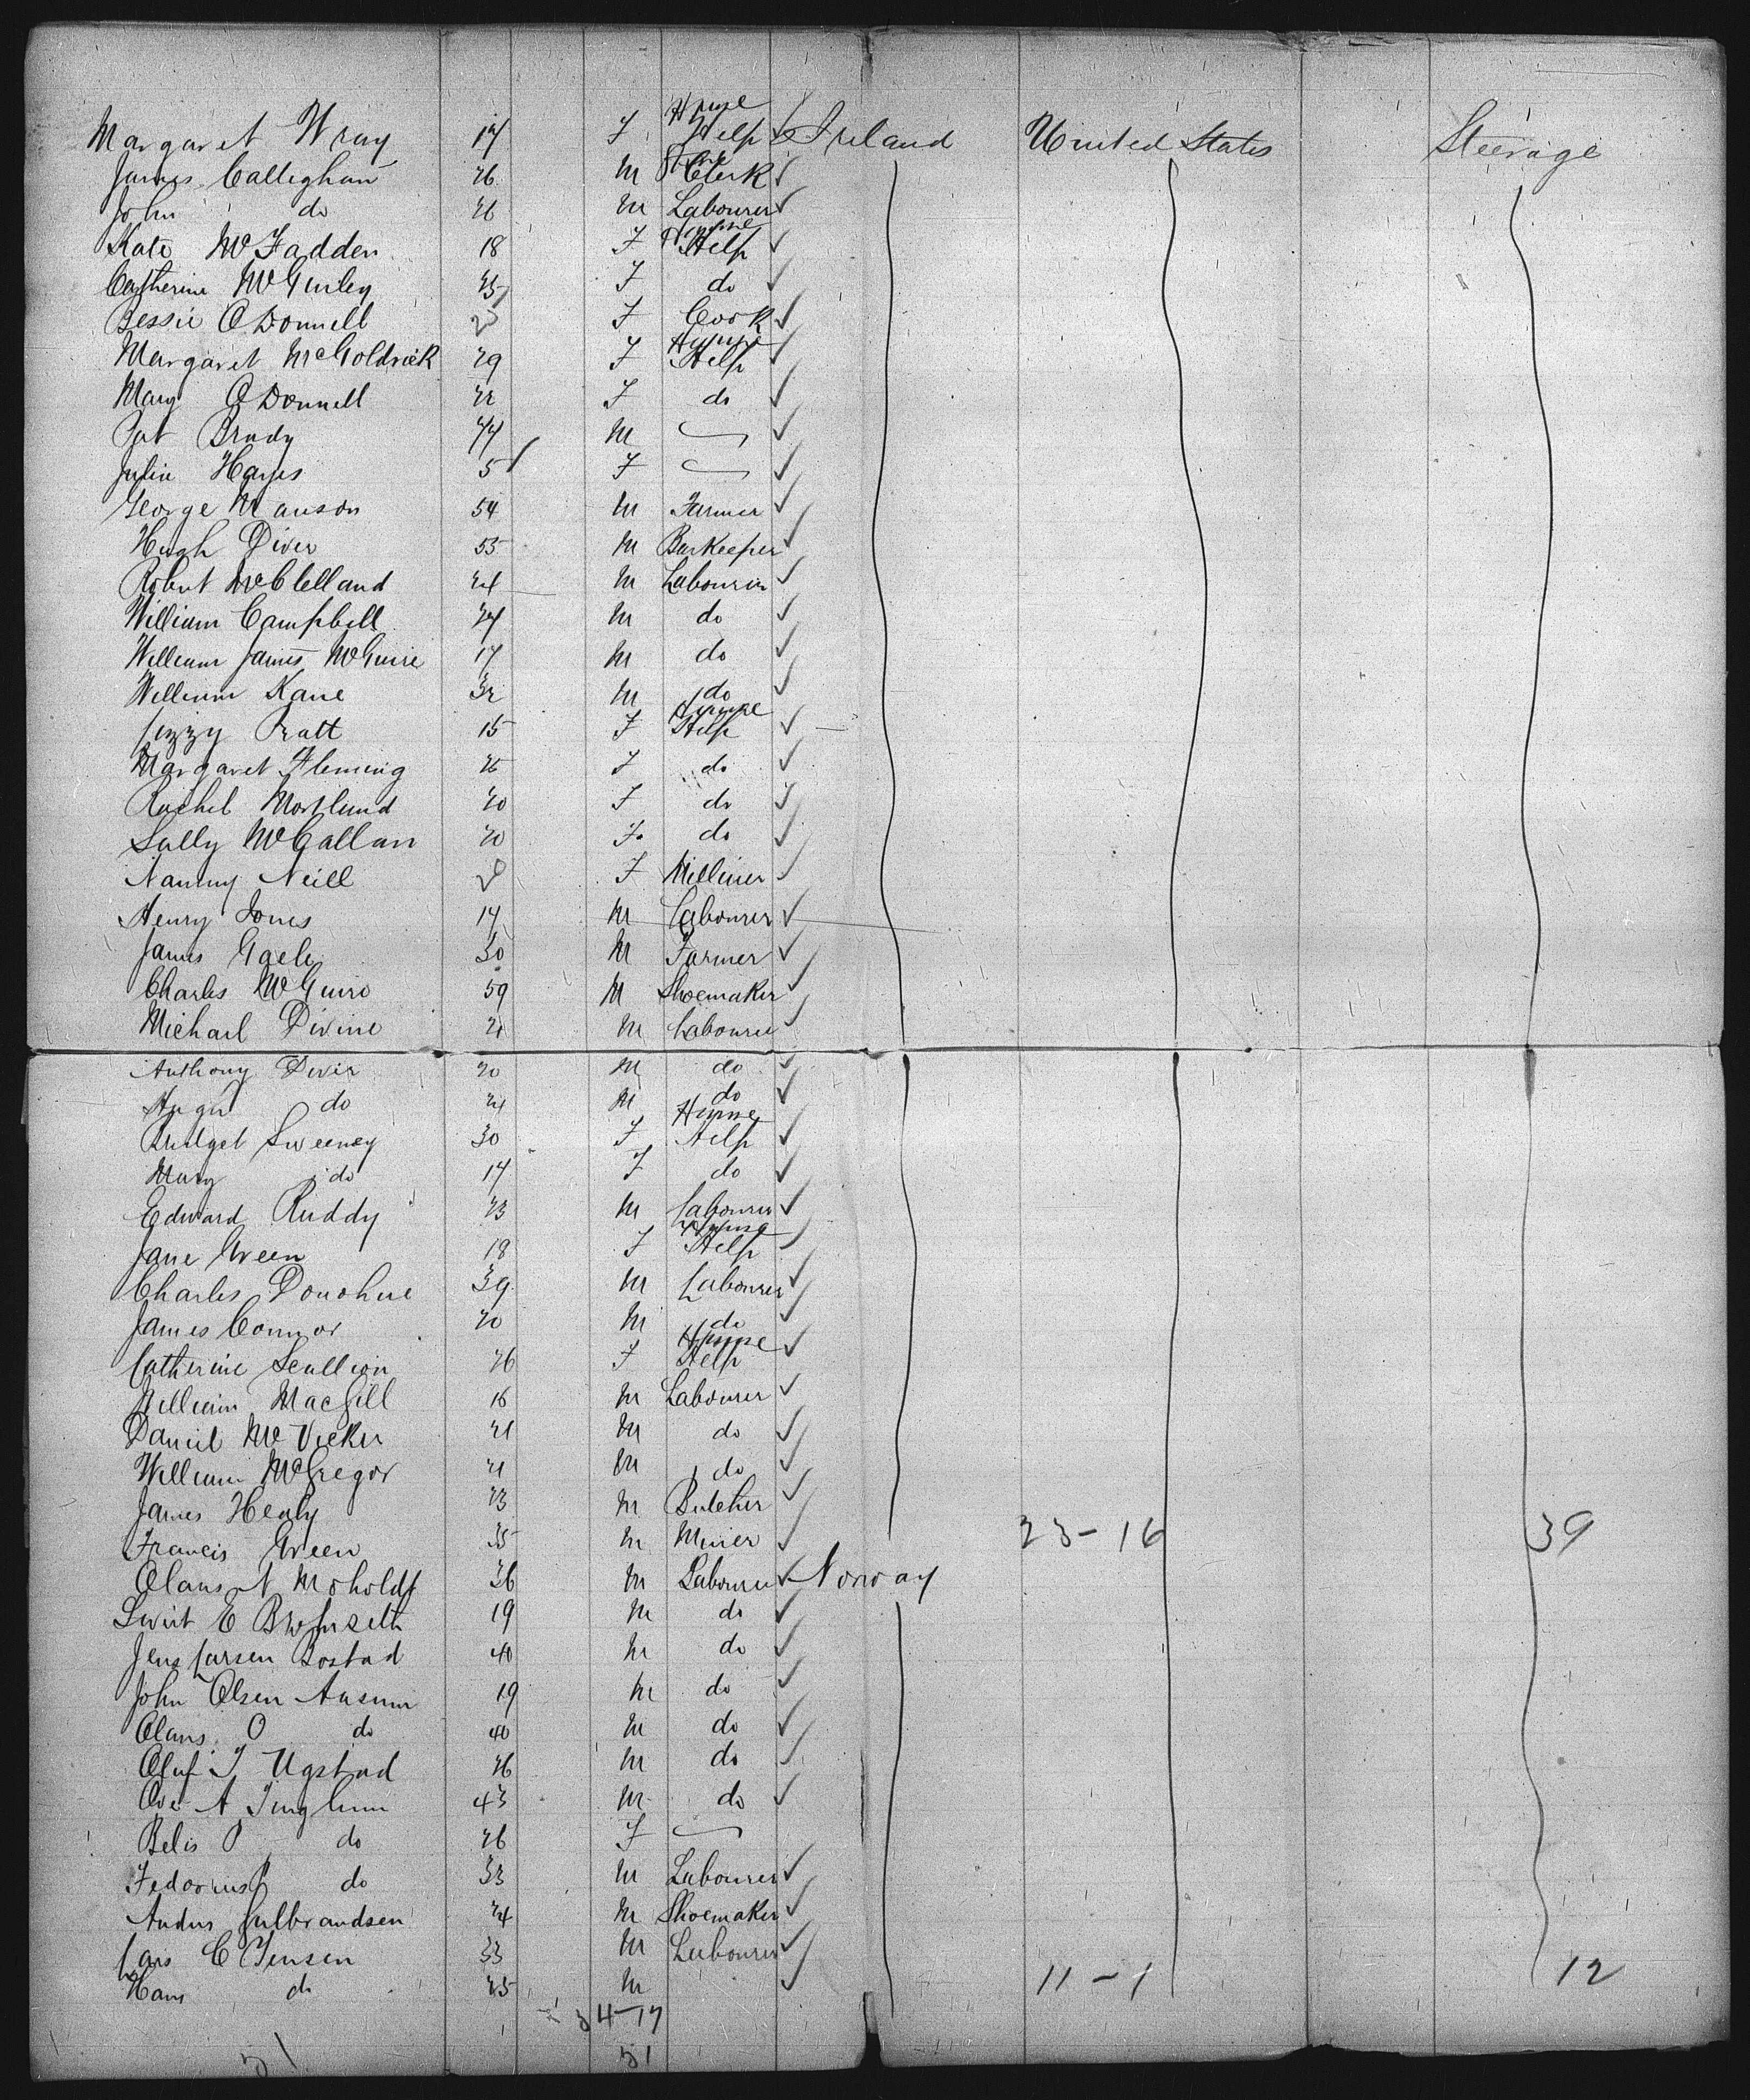 Margaret Wray 17 F House Help Ireland United States Steerage
James Calleghan 26 M Clerk
John do 26 M Labourer
Kate McFadden 18 F House Help
Catherine McGinley 25 F do
Bessie O Donnell 25 F Cook
Margaret McGoldrick 29 F House Help
Mary O Donnell 22 F do
Pat Brady 77 M
Julia Hayes 5 F
George Manson 54 M Farmer
Hugh Diver 55 M Barkeeper
Robert McClelland 24 M Labourer
William Campbell 24 M do
William James McGuire 17 M do
William Kane 32 M do
Lizzy Pratt 15 F House Help
Margaret Fleming F do
Rachel Mortland 20 F do
Sally McCallan 20 F do
Nanny Neill 20 F Milliner
Henry Jones 17 M Labourer
James Gaely 30 M Farmer
Charles McGuire 59 M Shoemaker
Michael Divine 21 M Labourer
Anthony Diver 20 M do
Hugh do 21 M do
Bridget Sweeney 30 F House Help
Mary do 17 F do
Edward Ruddy 23 M Labourer
Jane Green 18 F House Help
Charles Donohue 39 M Labourer
James Connor 20 M do
Catherine Scullion 26 F House Help
William MacGill 18 M Labourer
Daniel McVicker 21 M do
William McGregor 21 M do
James Healy 23 M Butcher
Francis Green 35 M Miner 23-16 39
Olaus N Moholdt 36 M Labourer Norway
E 19 M do
Jens Larsen Bostad 40 M do
John Olsen Aasum 19 M do
Olaus O do 40 M do
Oluf J Ugstad 26 M do
Ove A 43 M do
Belis P do 26 F
P do 33 M Labourer
Andrs Gulbrandsen 24 M Shoemaker
Lars C Jensen 33 M Labourer
Hans do 25 M 11-1 12
34-17
51 51